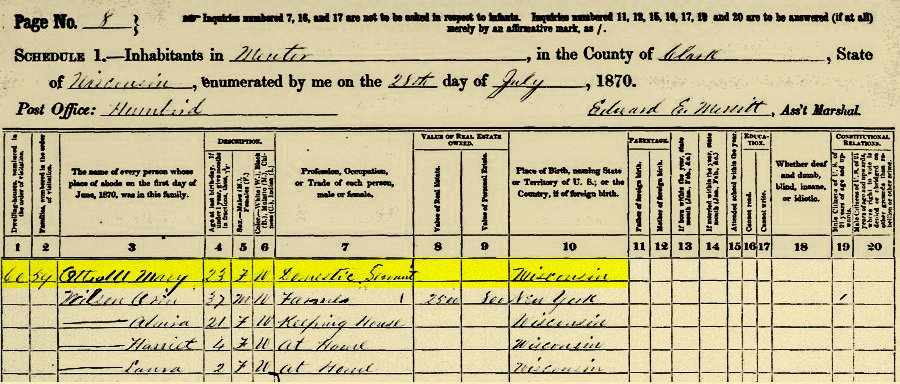 Page No. 8 }
Inquiries numbered 7, 16, and 17 are not to be asked in respect to infants. Inquiries numbered 11, 12, 15, 16, 17, 19 and 20 are to be answered (if at all)
merely by an affirmative mark, as /.
SCHEDULE 1.—Inhabitants in Mentor, in the County of Clark, State
of Wisconsin, enumerated by me on the 28th day of July, 1870.
Post Office: Humbird
Edward E. Merritt, Ass't Marshal.
DESCRIPTION. VALUE OF REAL ESTATE OWNED. PARENTAGE. EDUCATION. CONSTITUTIONAL RELATIONS.
Dwelling-houses, numbered in the order of visitation.
Families, numbered in the order of visitation.
The name of every person whose place of abode on the first day of June, 1870, was in this family.
Age at last birth-day. If under 1 year, give months in fractions, thus, 3/12.
Sex.—Males (M.), Females (F.)
Color.—White (W.), Black (B.), Mulatto (M.), Chinese (C.), Indian (I.)
Profession, Occupation, or Trade of each person, male or female.
Value of Real Estate.
Value of Personal Estate.
Place of Birth, naming State or Territory of U. S.; or the Country, if of foreign birth.
Father of foreign birth.
Mother of foreign birth.
If born within the year, state month (Jan., Feb., &c.)
If married within the year, state month (Jan., Feb., &c.)
Attended school within the year.
Cannot read.
Cannot write.
Whether deaf and dumb, blind, insane, or idiotic.
Male Citizens of U. S. of 21 years of age and upwards.
1 2 3 4 5 6 7 8 9 10 11 12 13 14 15 16 17 18 19 20
59 Mary 23 F W Domestic Servant Wisconsin
Wilson Orin 37 M W Farmer 2500 800 New York /
—— Almira 21 F W Keeping House Wisconsin
—— Harriet 4 F W At Home Wisconsin
—— Laura 2 F W At Home Wisconsin